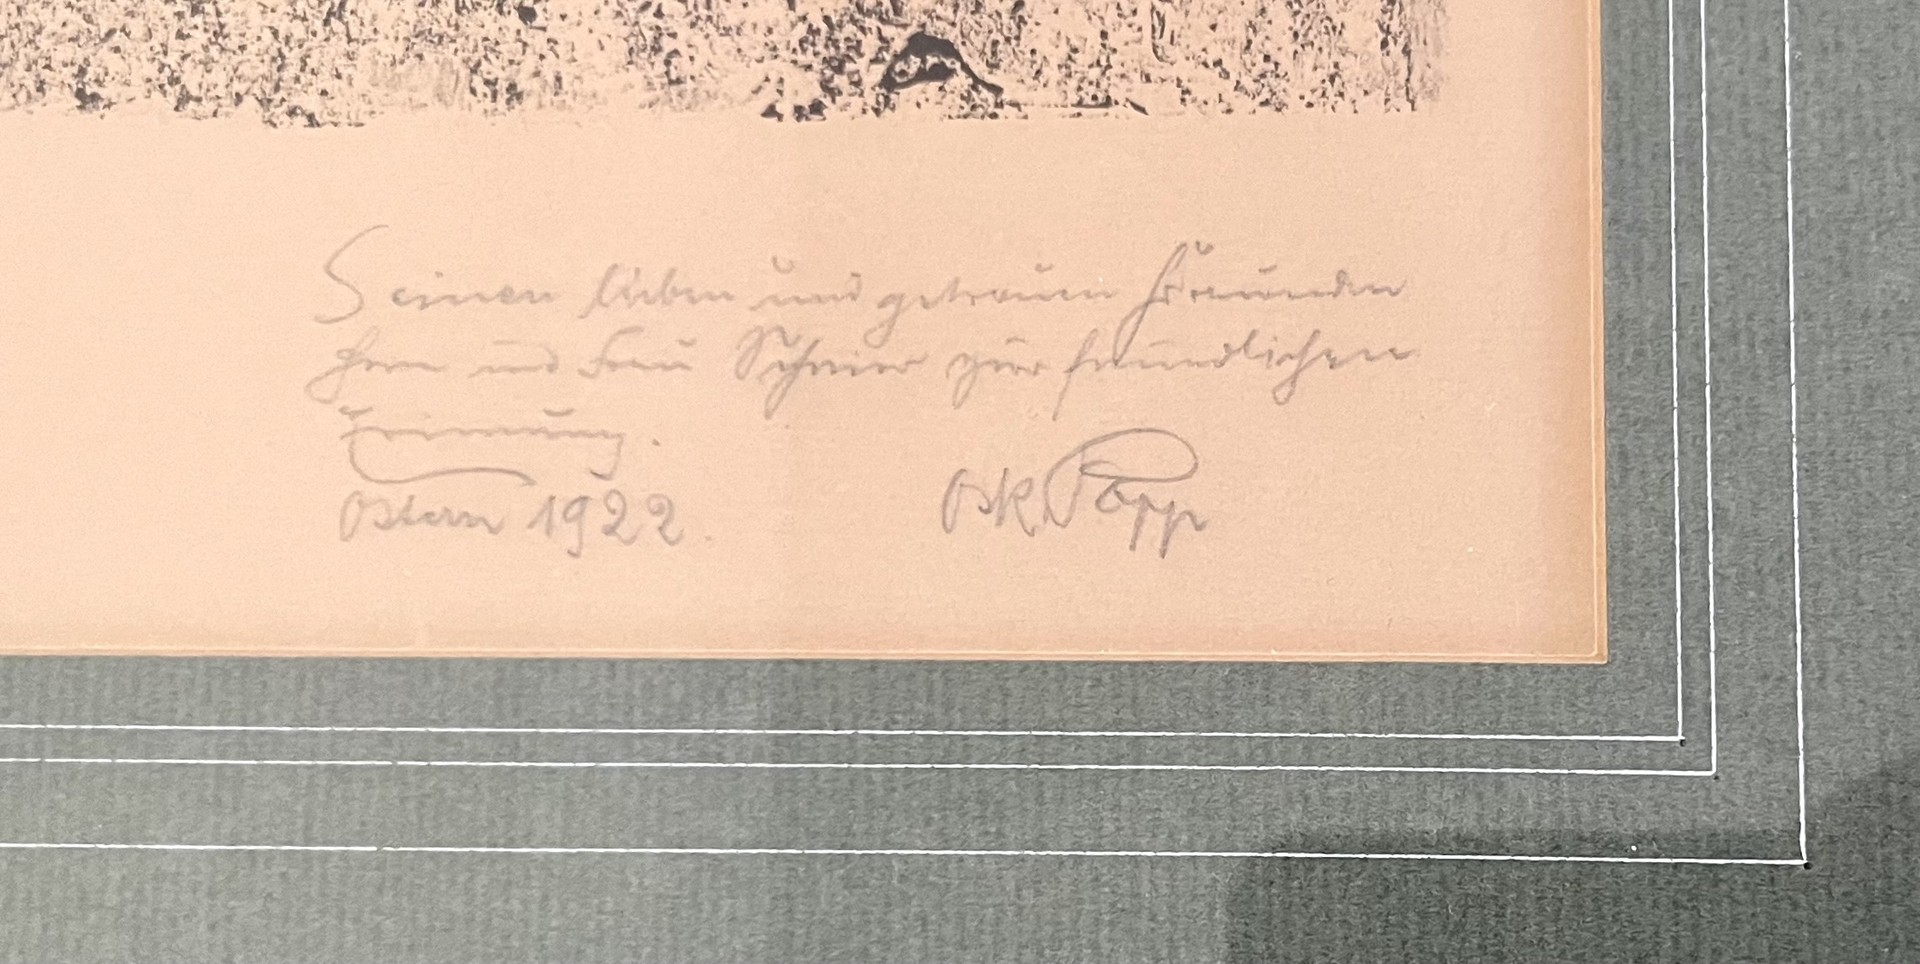 Seinen lieben und getreuen Freunden
Herrn und Frau zur freundlichen
Erinnerung.
Ostern 1922.
Osk Popp